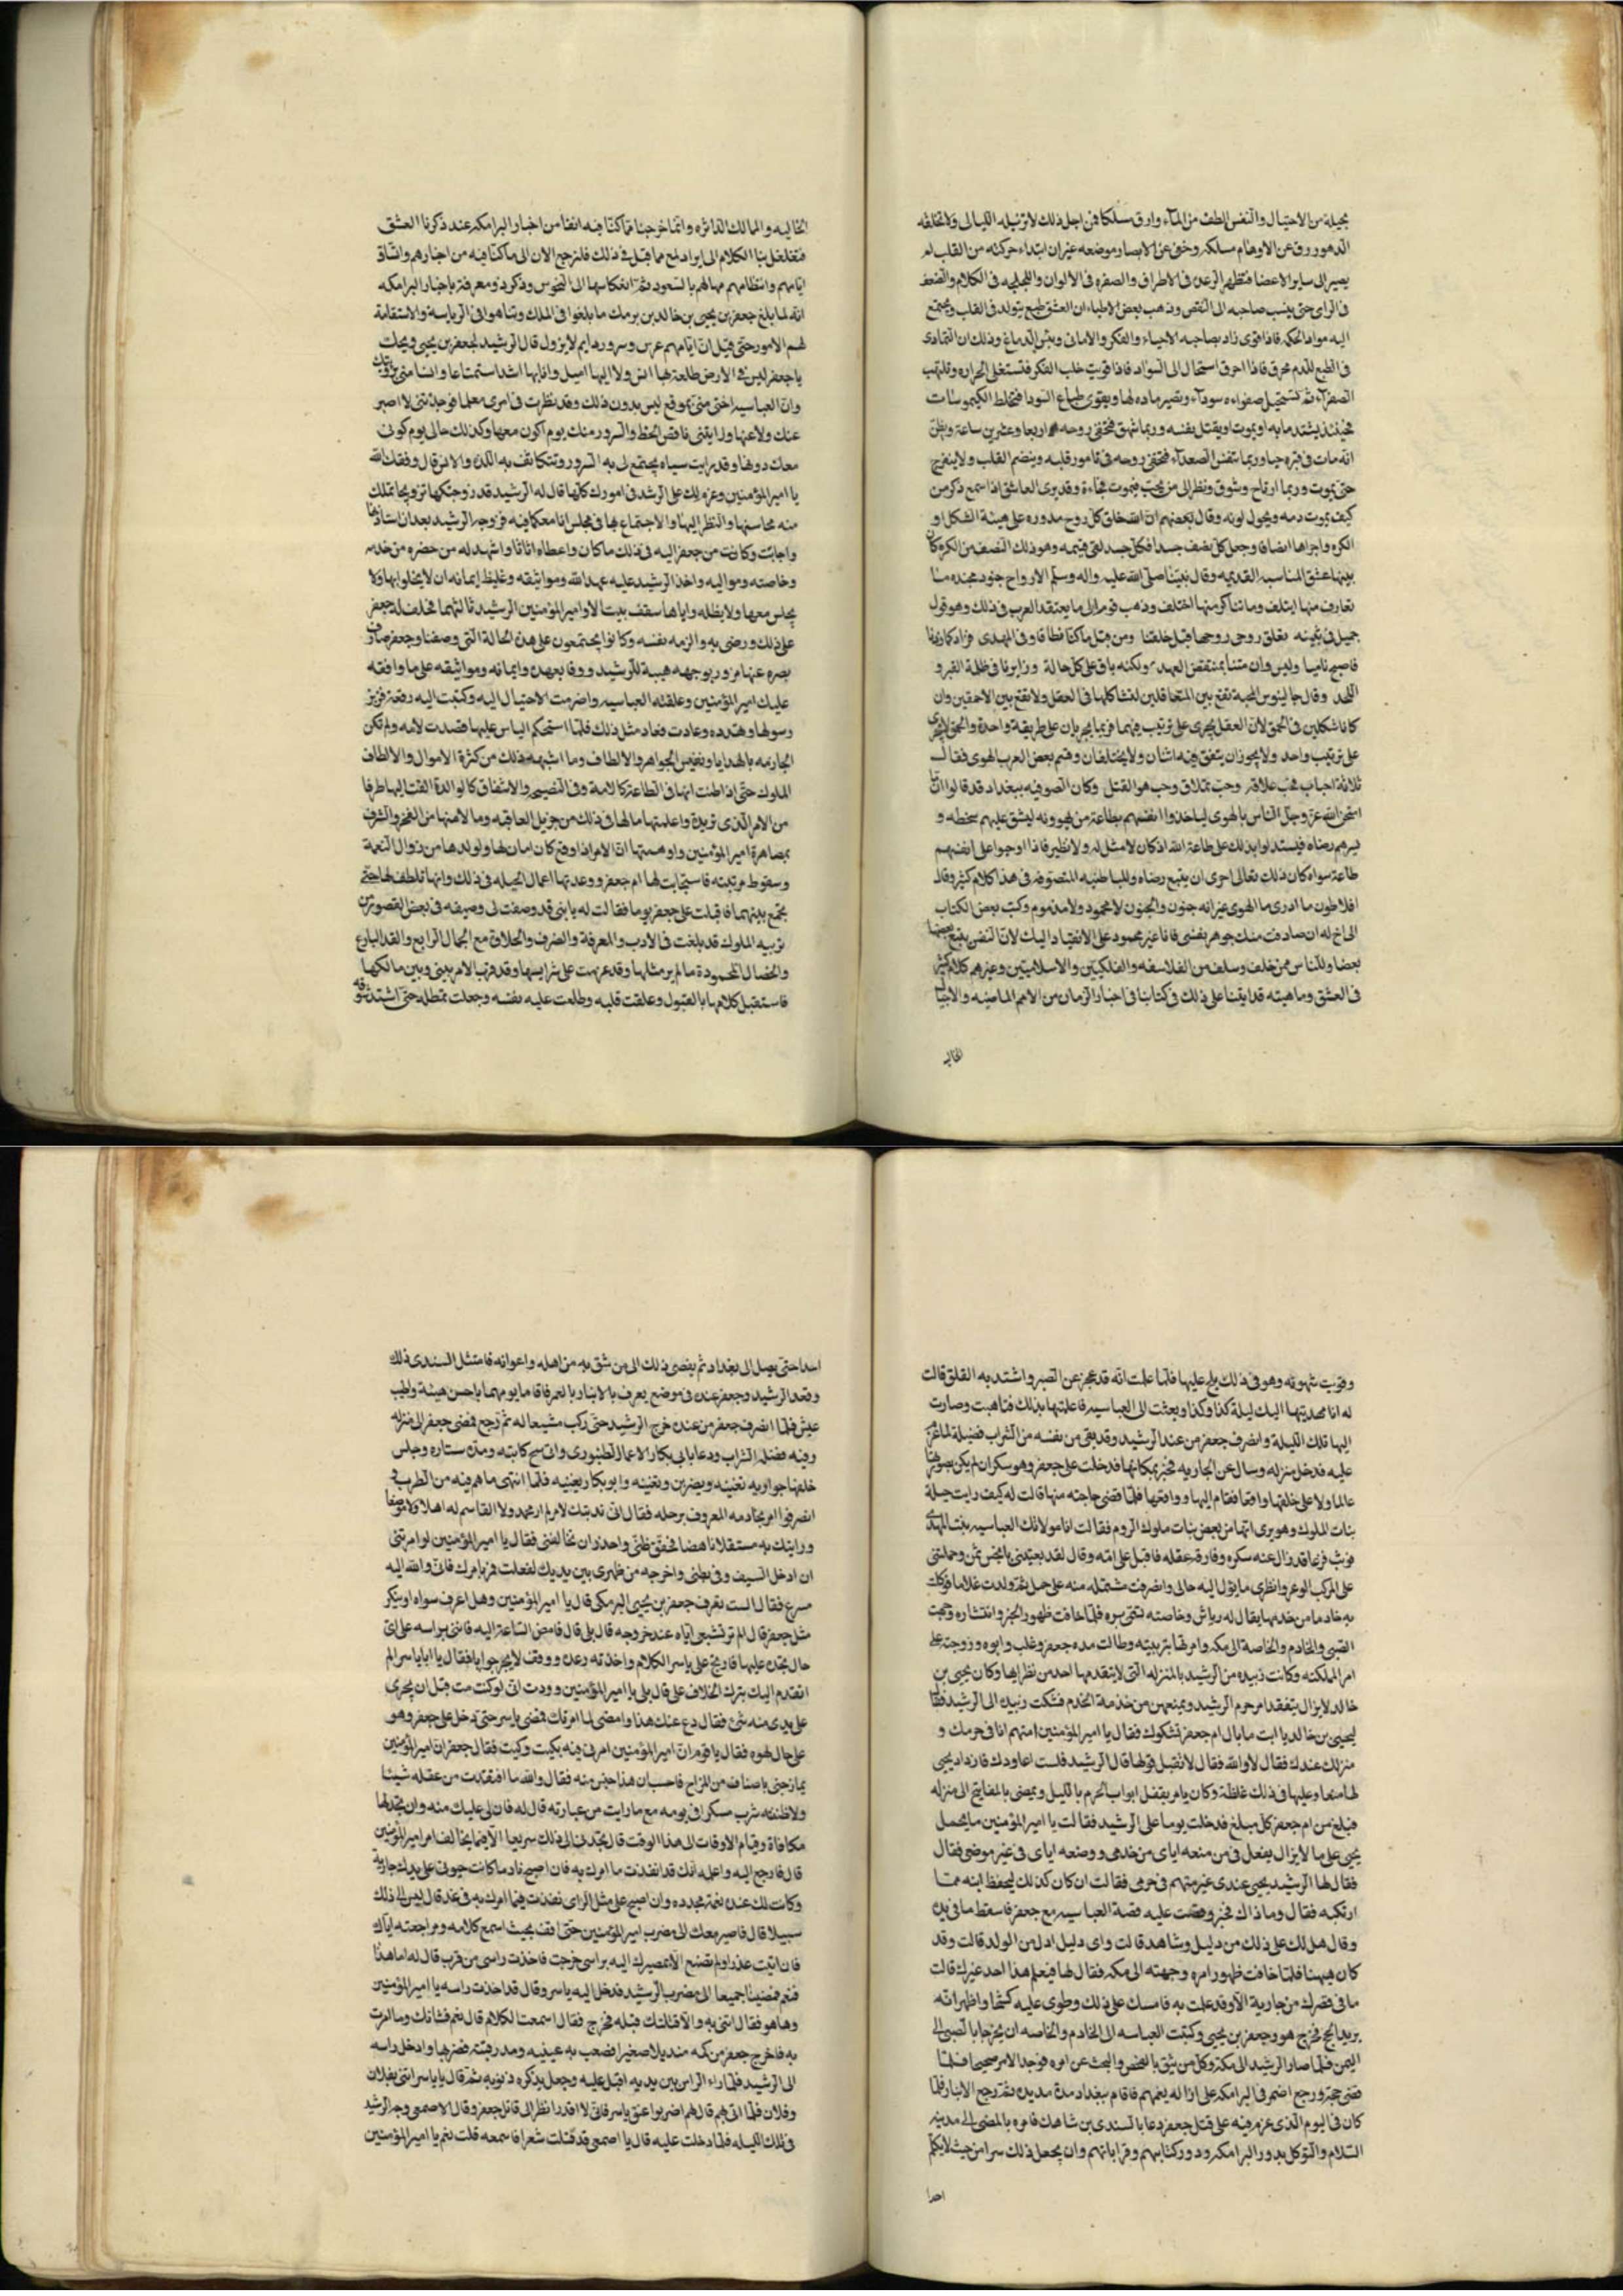 بحيلة من الاحتيال والنفس الطف من المآء وارق مسلكا فمن اجل ذلك لا تزيله الليالى ولا تخلقه
الدهور رق عن الاوهام مسلكه وخفى عن الابصار موضعه غير ان ابتداء حركته من القلب ثم
يصير الى ساير الاعضا فتظهر الرعده فى الاطراف والصفره فى الالوان واللجلجه فى الكلام والضعف
فى الراى حتى ينسب صاحبه الى النقص وذهب بعض الاطباء ان العشق طمع يتولد فى القلب ويجتمع
اليه مواد الحكم فاذا قوى زاد بصاحبه الاحياء والفكر والامانى ويبس الدماغ وذلك ان التمادى
فى الطمع للدم محرق فاذا احرق استحال الى السواد فاذا قويت جلب الفكر فتستعلى الحراره وتلتهب
الصفرآء ثم تستحيل صفراءه سودآء وتصير ماده لها ويقوى طباع السودا فتختلط الكيموسات
فحينئذ يشتد ما به او يموت او يقتل نفسه وربما شهق فتختفى روحه اربعا وعشرين ساعة ويظن
انه مات فى قبره حيا وربما تنفس الصعدآء فتختفى روحه فى تامور قلبه وينضم القلب ولا ينفرج
حتى يموت وربما ارتاح وشوق ونظر الى من يحب فيموت فجاءة وقد يرى العاشق اذا سمع ذكر من
كيف يموت دمه ويحول لونه وقال بعضهم ان الله خلق كل روح مدوره على هيئة الشكل او
الكره واجزاها انصافا وجعل كل نصف جسدا فكل جسد لقى قسيمه وهو ذلك النصف من الكره كان
بينهما عشق المناسبه القديمه وقال نبينا صلى الله عليه واله وسلم الارواح جنود مجنده ما
تعارف منها ايتلف وما تناكر منها اختلف وذهب قوم الى ما يعتقد العرب فى ذلك وهو قول
جميل فى بثينه تعلق روحى روحها قبل خلقنا ومن قبل ما كنا نطافا وفى المهدى فزاد كما زدنا
فاصبح ناميا وليس وان متنا بمنتقض العهد ولكنه باق على كل حالة وزايرنا فى ظلمة القبر و
اللحد وقال جالينوس المحبة تقع بين المتعاقلين لتشاكلهما فى العقل ولا تقع بين الاحمقين وان
كانا شكلين فى الحمق لان العقل يجرى على ترتيب فيهما فربما يجريان على طريقة واحدة والحمق لا يجرى
على ترتيب واحد ولا يجوز ان يتفق فيه اثنان ولا يختلفان وقسم بعض العرب الهوى فقال
ثلاثة احباب فحب علاقة وحب تملاق وحب هو القتل وكان الصوفيه ببغداد قد قالوا انما
امتحن الله عز وجل الناس بالهوى لياخذوا انفسهم بطاعة من يهوونه ليشق عليهم سخطه و
يسرهم رضاه فيستدلوا بذلك على طاعة الله اذ كان لا مثل له ولا نظير فاذا اوجبوا على انفسهم
طاعة سواه كان ذلك تعالى احرى ان يتبع رضاه وللباطنيه المتصوفه فى هذا كلام كثير وقال
افلاطون ما ادرى ما الهوى غير انه جنون والجنون لا محمود ولا مذموم وكتب بعض الكتاب
الى اخ له ان صادفت منك جوهر نفسى فانا غير محمود على الانقياد اليك لان النفس يتبع بعضها
بعضا وللناس ممن خلف وسلف من الفلاسفه والفلكيين والاسلاميين وغيرهم كلام كثير
فى العشق وماهيته قد اتينا على ذلك فى كتابنا فى اخبار الزمان من الامم الماضيه والاجيال
الخاليه
الخاليه والممالك الداثره وانما خرجنا مما كنا فيه انفا من اخبار البرامكه عند ذكرنا العشق
فتغلغل بنا الكلام الى ايراد لمع مما قيل فى ذلك فلنرجع الان الى ما كنا فيه من اخبارهم واتساق
ايامهم وانتظامهم مما لهم بالسعود ثم انعكاسها الى النحوس وذكر ذو معرفة باخبار البرامكه
انه لما بلغ جعفر بن يحيى بن خالد بن برمك ما بلغوا فى الملك وتناهوا فى الرياسة والاستقامة
لهم الامور حتى قيل ان ايامهم عرس وسرور دايم لا يزول قال الرشيد لجعفر بن يحيى ويحك
يا جعفر ليس فى الارض طلعة بها انس ولا اليها اميل وانا بها اشد استمتاعا وانسا منى برؤيتك
وان العباسيه اختى منى بموقع ليس بدون ذلك وقد نظرت فى امرى معكما فوجدتنى لا اصبر
عنك ولا عنها ورايتنى ناقص الحظ والسرور منك يوم اكون معها وكذلك حالى يوم كونى
معك دونها وقد رايت سيأه يجتمع لى به السرور وتتكاثف به اللذه والانس قال وفقك الله
يا امير المؤمنين وعزم لك على الرشد فى امورك كلها قال له الرشيد قد زوجتكها تزويجا تملك
منه مجالستها والنظر اليها والاجتماع بها فى مجلس انا معكما فيه فزوجه الرشيد بعد ان ستاذنها
واجابت وكانت من جعفر اليه فى ذلك ما كان واعطاه اثاثا واشهد له من حضره من خدمه
وخاصته ومواليه واخذ الرشيد عليه عهد الله ومواثيقه وغليظ ايمانه ان لا يخلو بها ولا
يجلس معها ولا يظله واياها سقف بيت الا وامير المؤمنين الرشيد ثالثهما فحلف له جعفر
على ذلك ورضى به والزمه نفسه وكانوا يجتمعون على هذه الحالة التى وصفنا وجعفر صارف
بصره عنها مزور بوجهه هيبة للرشيد ووفا بعهده وايمانه ومواثيقه على ما وافقه
عليك امير المؤمنين وعلقته العباسيه واضرمت الاحتيال اليه وكتبت اليه رقعة فزبر
رسولها وهدده وعادت فعاد مثل ذلك فلما استحكم الياس عليها قصدت لامه ولم تكن
الحازمه بالهدايا ونفيس الجواهر والالطاف وما اشبهه ذلك من كثرة الاموال والالطاف
الملوك حتى اذا ظنت انها فى الطاعة كالامة وفى النصيح والاشفاق كالوالدة القت اليها طرفا
من الامر الذى تريده واعلمتها ما لها فى ذلك من جزيل العاقبه وما لابنها من الفخر والشرف
بمصاهرة امير المؤمنين واوهمتها ان الامر اذا وقع كان امان لها ولولدها من زوال النعمة
وسقوط مرتبته فاستجابت لها ام جعفر ووعدتها اعمال الحيله فى ذلك وانها تلطف لها حتى
تجمع بينهما فاقبلت على جعفر يوما فقالت له يا بنى قد وصفت لى وصيفه فى بعض القصور من
تربيه الملوك قد بلغت فى الادب والمعرفة والضرف والحلاق مع الجمال الرايع والقد البارع
والخصال المحمودة ما لم ير مثلها وقد عزمت على شرايها وقد قرب الامر بينى وبين مالكها
فاستقبل كلامها بالقبول وعلقت قلبه وطلعت عليه نفسه وجعلت تمطله حتى اشتد شوقه
وقويت شهوته وهو فى ذلك يلح عليها فلما علمت انه قد عجز عن الصبر واشتد به القلق قالت
له انا مهديتها اليك ليلة كذا وكذا وبعثت الى العباسيه فاعلمتها بذلك فتاهبت وصارت
اليها تلك الليلة وانصرف جعفر من عند الرشيد وقد بقى من نفسه من الشراب فضيلة لما عزم
عليه فدخل منزله وسال عن الجاريه فخبر بمكانها فدخلت على جعفر وهو سكران لم يكن بصورتها
عالما ولا على خلقها واقفا فقام اليها وواقعها فلما قضى حاجته منها قالت له كيف رايت حيلة
بنات الملوك وهو يرى انها من بعض بنات ملوك الروم فقالت انا مولاتك العباسيه بنت المهدى
فوثب فزعا قد زال عنه سكره وفارقه عقله فاقبل على امه وقال لقد بعتينى بالبخس ثمن وحملتنى
على المركب الوعر وانظرى ما يؤل اليه حالى وانصرفت مشتمله منه على حمل ثم ولدت غلاما فوكلت
به خادما من خدمها يقال له رياش وخاصته تسمى بره فلما خافت ظهور الخبر وانتشاره وجهت
الصبى والخادم والخاصة الى مكه وامرتها بتربيته وطالت مده جعفر وغلب وابوه وزوجته على
امر المملكته وكانت زبيده من الرشيد بالمنزله التى لا يتقدمها احد من نظرايها وكان يحيى بن
خالد لا يزال يتفقد امر حرم الرشيد ويمنعهن من خذمة الخدم فشكت زبيد الى الرشيد فقال
ليحيى بن خالد يا ابت ما بال ام جعفر تشكوك فقال يا امير المؤمنين امتهم انا فى حرمك و
منزلك عندك فقال لا والله فقال لا تقبل قولها قال الرشيد فلست اعاودك فازداد يحيى
لها منعا وعليها فى ذلك غلظة وكان يامر بقفل ابواب الحرم بالليل ويمضى بالمفاتيح الى منزله
فبلغ من ام جعفر كل مبلغ فدخلت يوما على الرشيد فقالت يا امير المؤمنين ما يحمل
يحيى على ما لا يزال يفعل فى من منعه اياى من خدمى ووضعه اياى فى غير موضعى فقال
فقال لها الرشيد يحيى عندى غير متهم فى حرمى فقالت ان كان كذلك ليحفظ ابنه مما
ارتكبه فقال وما ذاك فخبر وقصت عليه قصة العباسيه مع جعفر فاسقط ما فى يده
وقال هل لك على ذلك من دليل وشاهد قالت واى دليل ادل من الولد قالت وقد
كان هيهنا فلما خافت ظهور امره وجهته الى مكه فقال لها فيعلم هذا احد غيرك قالت
ما فى قصرك من جارية الا وقد علمت به فامسك على ذلك وطوى عليه كشحا واظهر انه
يريد الحج فخرج هو وجعفر بن يحيى وكتبت العباسه الى الخادم والخاصه ان يخرجا بالصبى الى
اليمن فلما صار الرشيد الى مكه وكل من يثق بالفحص والبحث عن امره فوجد الامر صحيحا فلما
قضى حجه ورجع اضمر فى البرامكه على ازاله نعمهم فاقام ببغداد مدة مديده ثم رجع الانبار فلما
كان فى اليوم الذى عزم فيه على قتل جعفر دعا بالسندى بن شاهك فامره بالمضى الى مدينه
السلام والتوكل بدور البرامكه ودور كتابهم وقراباتهم وان يجعل ذلك سرا من حيث لا يكلم
احدا
احدا حتى يصل الى بغداد ثم يفضى ذلك الى من يثق به من اهله واعوانه فامتثل السندى ذلك
وقعد الرشيد وجعفر عنده فى موضع يعرف بالانبار بالعمر فاقاما يومهما باحسن هيئة واطيب
عيش فلما انصرف جعفر من عنده خرج الرشيد حتى ركب مشيعا له ثم رجع فمضى جعفر الى منزله
وفيه فضله الشراب ودعا بابى بكار الاعما الطنبورى وابن سح كاتبه ومدت ستاره وجلس
خلفها جواريه تغنينه ويضربن وتغنينه وابو بكار يغنيه فلما انتهى ما هم فيه من الطرب
انصرفوا امر بخادمه المعروف برحله فقال انى ندبتك لامر لم ار محمد ولا القاسم له اهلا ولا موضعا
ورايتك به مستقلا ناهضا فحقق ظنى واحذر ان تخالفنى فقال يا امير المؤمنين لو امرتنى
ان ادخل السيف فى بطنى واخرجه من ظهرى بين يديك لفعلت فمر بامرك فانى والله اليه
مسرع فقال الست تعرف جعفر بن يحيى البرمكى قال يا امير المؤمنين وهل اعرف سواه او ينكر
مثل جعفر قال الم تر تشيعى اياه عند خروجه قال بلى قال فامض الساعة اليه فائتنى براسه على اى
حال تجده عليها فارتج على ياسر الكلام واخذته رعده ووقف لا يحير جوابا فقال يا ابا ياسر الم
اتقدم اليك بترك الخلاف على قال بلى يا امير المؤمنين ووددت انى لو كنت مت قبل ان يجرى
على يدى منه شئ فقال دع عنك هذا وامضى لما امرتك فمضى ياسر حتى دخل على جعفر وهو
على حال لهوه فقال يا قوم ان امير المؤمنين امرنى فيه بكيت وكيت فقال جعفر ان امير المؤمنين
يمازحنى باصناف من المزاح فاحسب ان هذا جنس منه فقال والله ما افتقدت من عقله شيئا
ولا ظننته شرب مسكرا فى يومه مع ما رايت من عبارته قال له فان لى عليك منه وان تجد لها
مكافاة وقيام الاوقات الى هذا الوقت قال تجدنى الى ذلك سريعا الا فيما يخالف امر امير المؤمنين
قال فارجع اليه واعلمه انك قد انفذت ما امرك به فان اصبح نادما كانت حيوتى على يدك جاريه
وكانت لك عنده نعمة مجدده وان اصبح على مثل الراى نفذت فيما امرك به فى غد قال ليس الى ذلك
سبيلا قال فاصير معك الى مضرب امير المؤمنين حتى اقف بحيث اسمع كلامه ومراجعته اياك
فان اتيت عذرا ولم تصنع الا بمصيرك اليه براسى خرجت فاخذت راسى من قرب قال له اما هذا
فنعم فمضيا جميعا الى مضرب الرشيد فدخل اليه ياسر وقال قد اخذت راسه يا امير المؤمنين
وها هو فقال ائتنى به والا قتلتك قبله فخرج فقال اسمعت الكلام قال نعم فشانك وما امرت
به فاخرج جعفر من كمه منديلا صغيرا فعصب به عينيه ومد رقبته فضربها وادخل راسه
الى الرشيد فلما راء الراس بين يديه اقبل عليه وجعل يذكره ذنوبه ثم قال يا ياسر ائتنى بفلان
وفلان فلما اتى بهم قال لهم اضربوا عنق ياسر فانى لا اقدر انظر الى قاتل جعفر وقال الاصمعى وجه الرشيد
فى تلك الليله فلما دخلت عليه قال يا اصمعى قد قلت شعرا فاسمعه قلت نعم يا امير المؤمنين